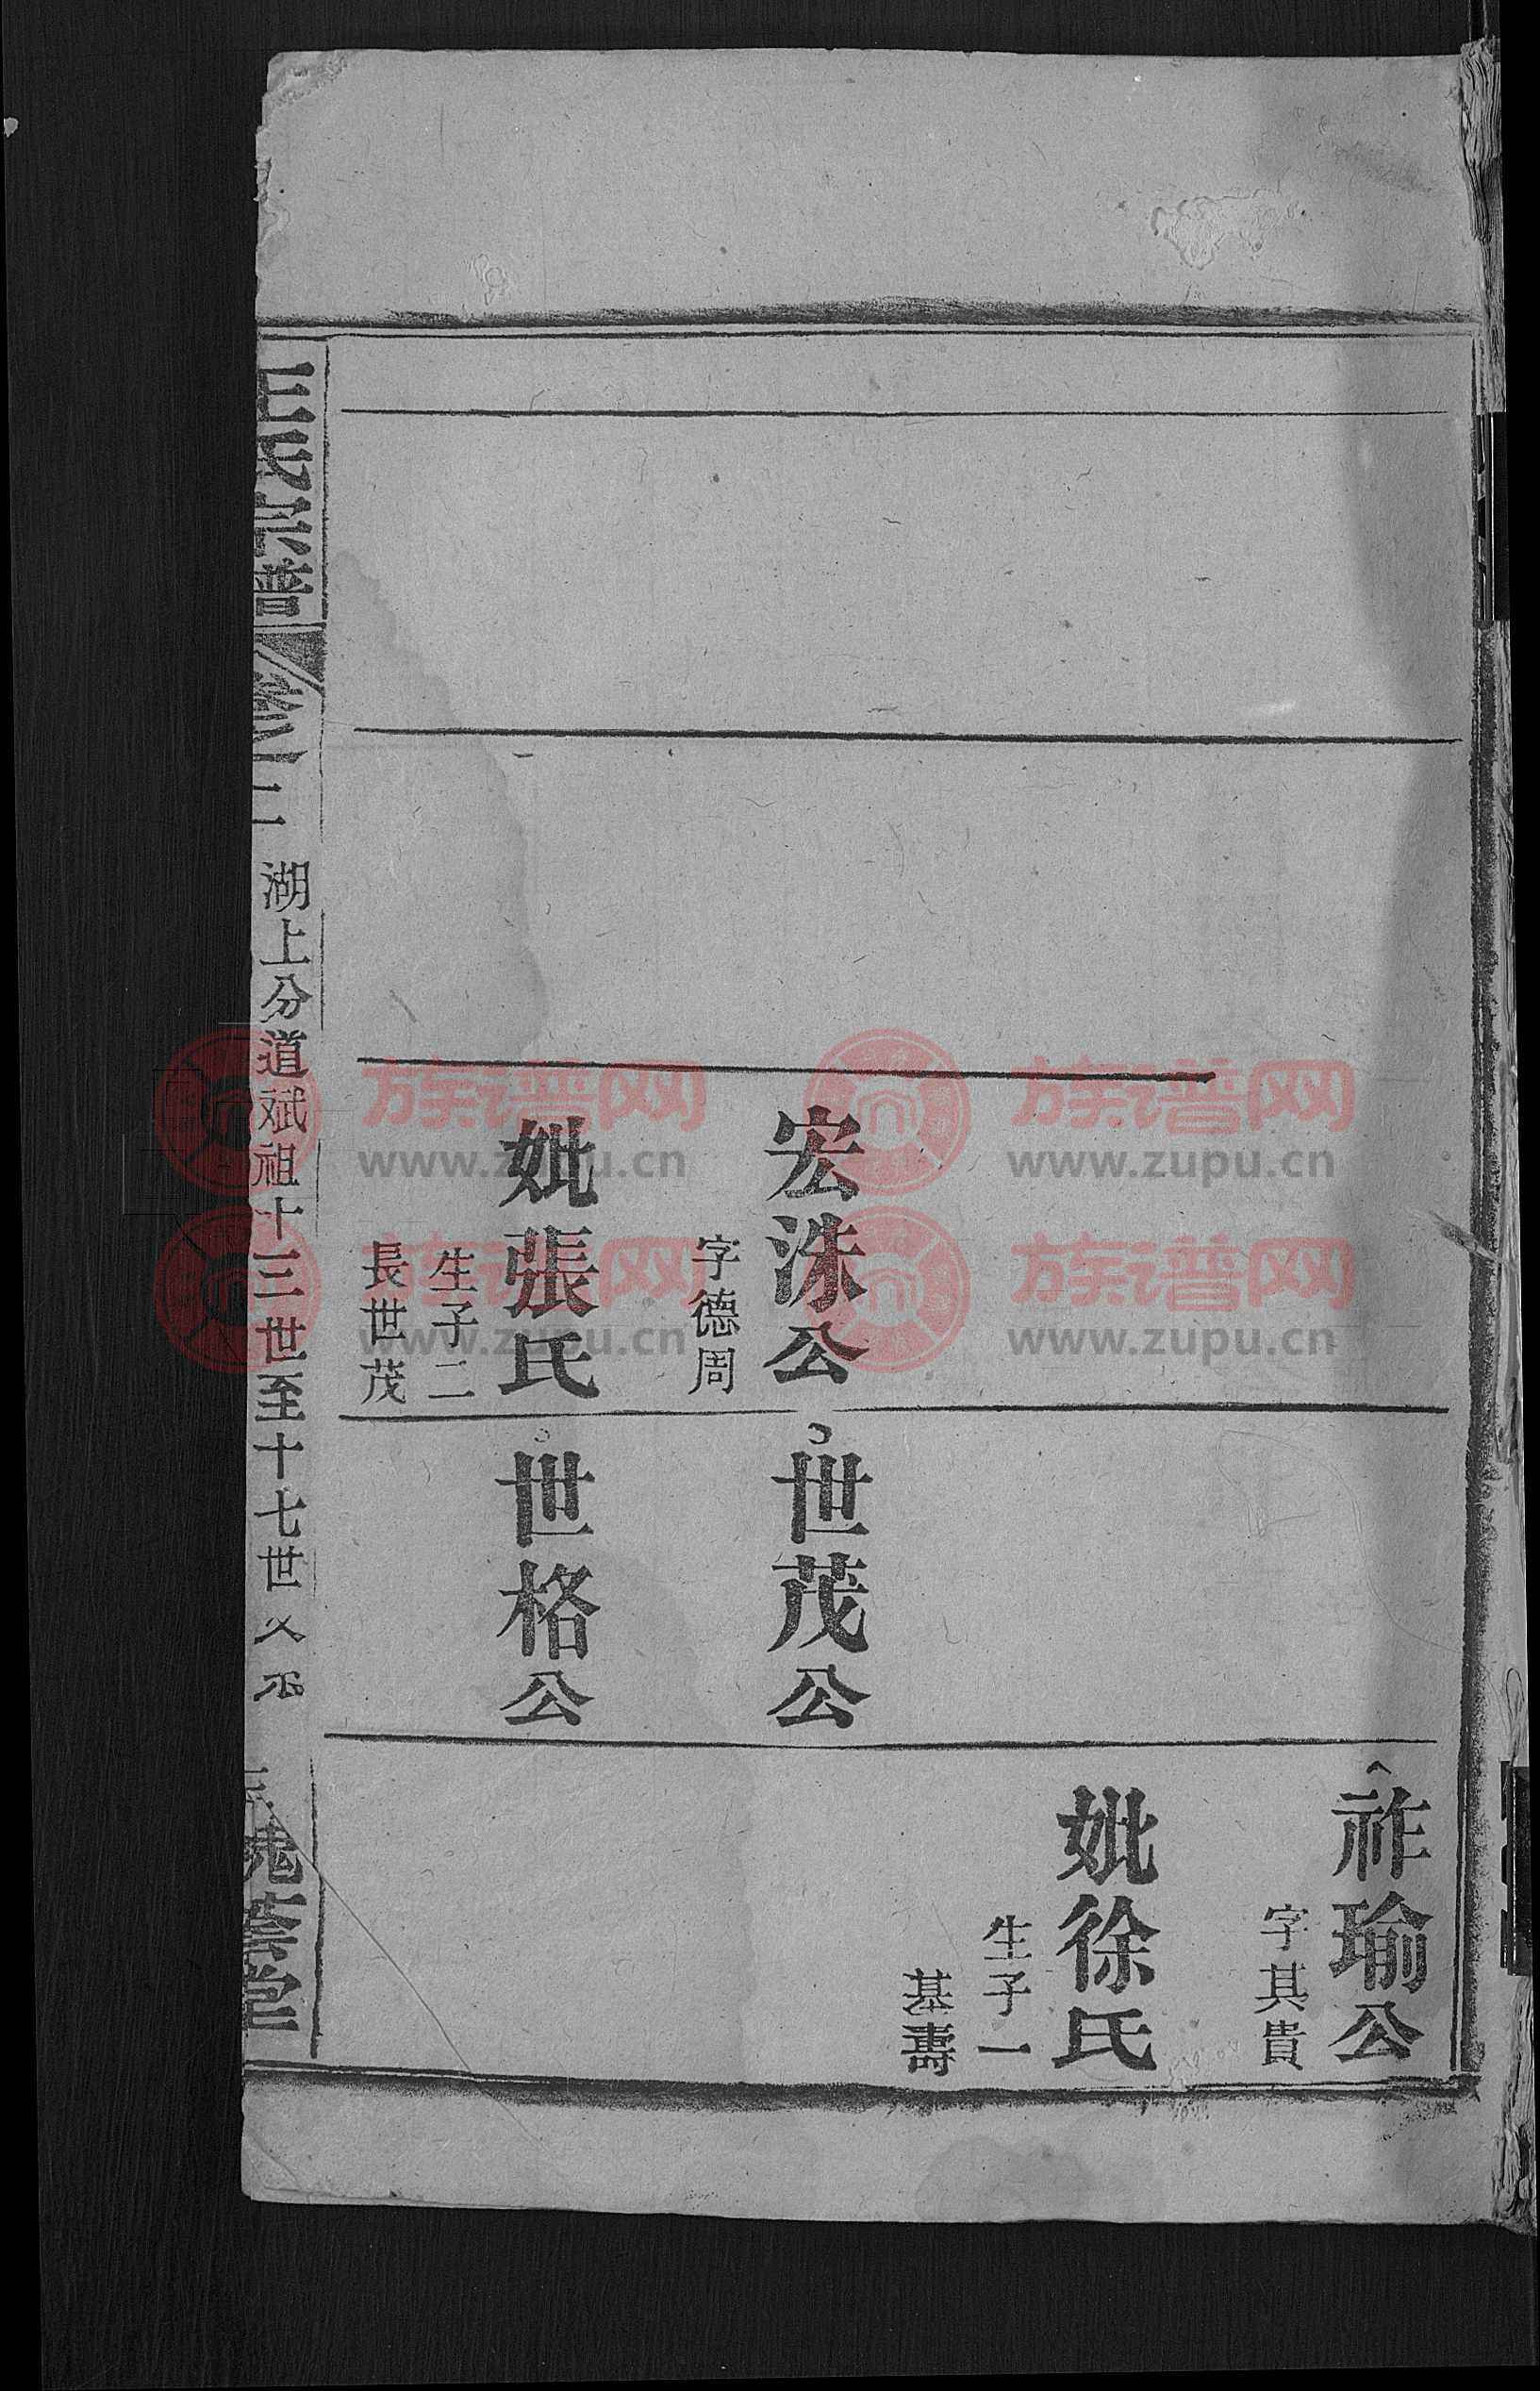 祚瑜公
字其貴
妣徐氏
生子一
基壽
宏洙公
字德周
妣張氏
生子二
長世茂
世茂公
世格公
王氏宗譜
卷二
湖上分道斌祖十三世至十七世
三槐蔭堂
族谱网
www.zupu.cn
族谱网
www.zupu.cn
族谱网
www.zupu.cn
族谱网
www.zupu.cn